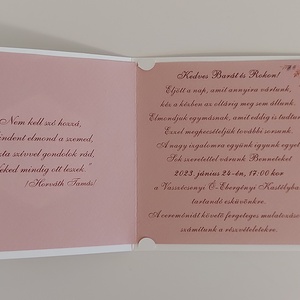 "Nem kell szó hozzá,
mindent elmond a szemed,
tiszta szívvel gondolok rád,
Neked mindig ott leszek."
/Horváth Tamás/
Kedves Barát és Rokon!
Eljött a nap, amit annyira vártunk,
kéz a kézben az oltárig meg sem állunk.
Elmondjuk egymásnak, amit eddig is tudtunk,
Ezzel megpecsételjük további sorsunk.
A nagy izgalomra együnk együnk
Sok szeretettel várunk Benneteket
2023. június 24-én, 17:00 kor
a Vasszécsenyi Ó-Ebergényi Kastélyba
tartandó esküvőnkre.
A ceremóniát követő fergeteges mulatságra
számítunk a részvételetekre.